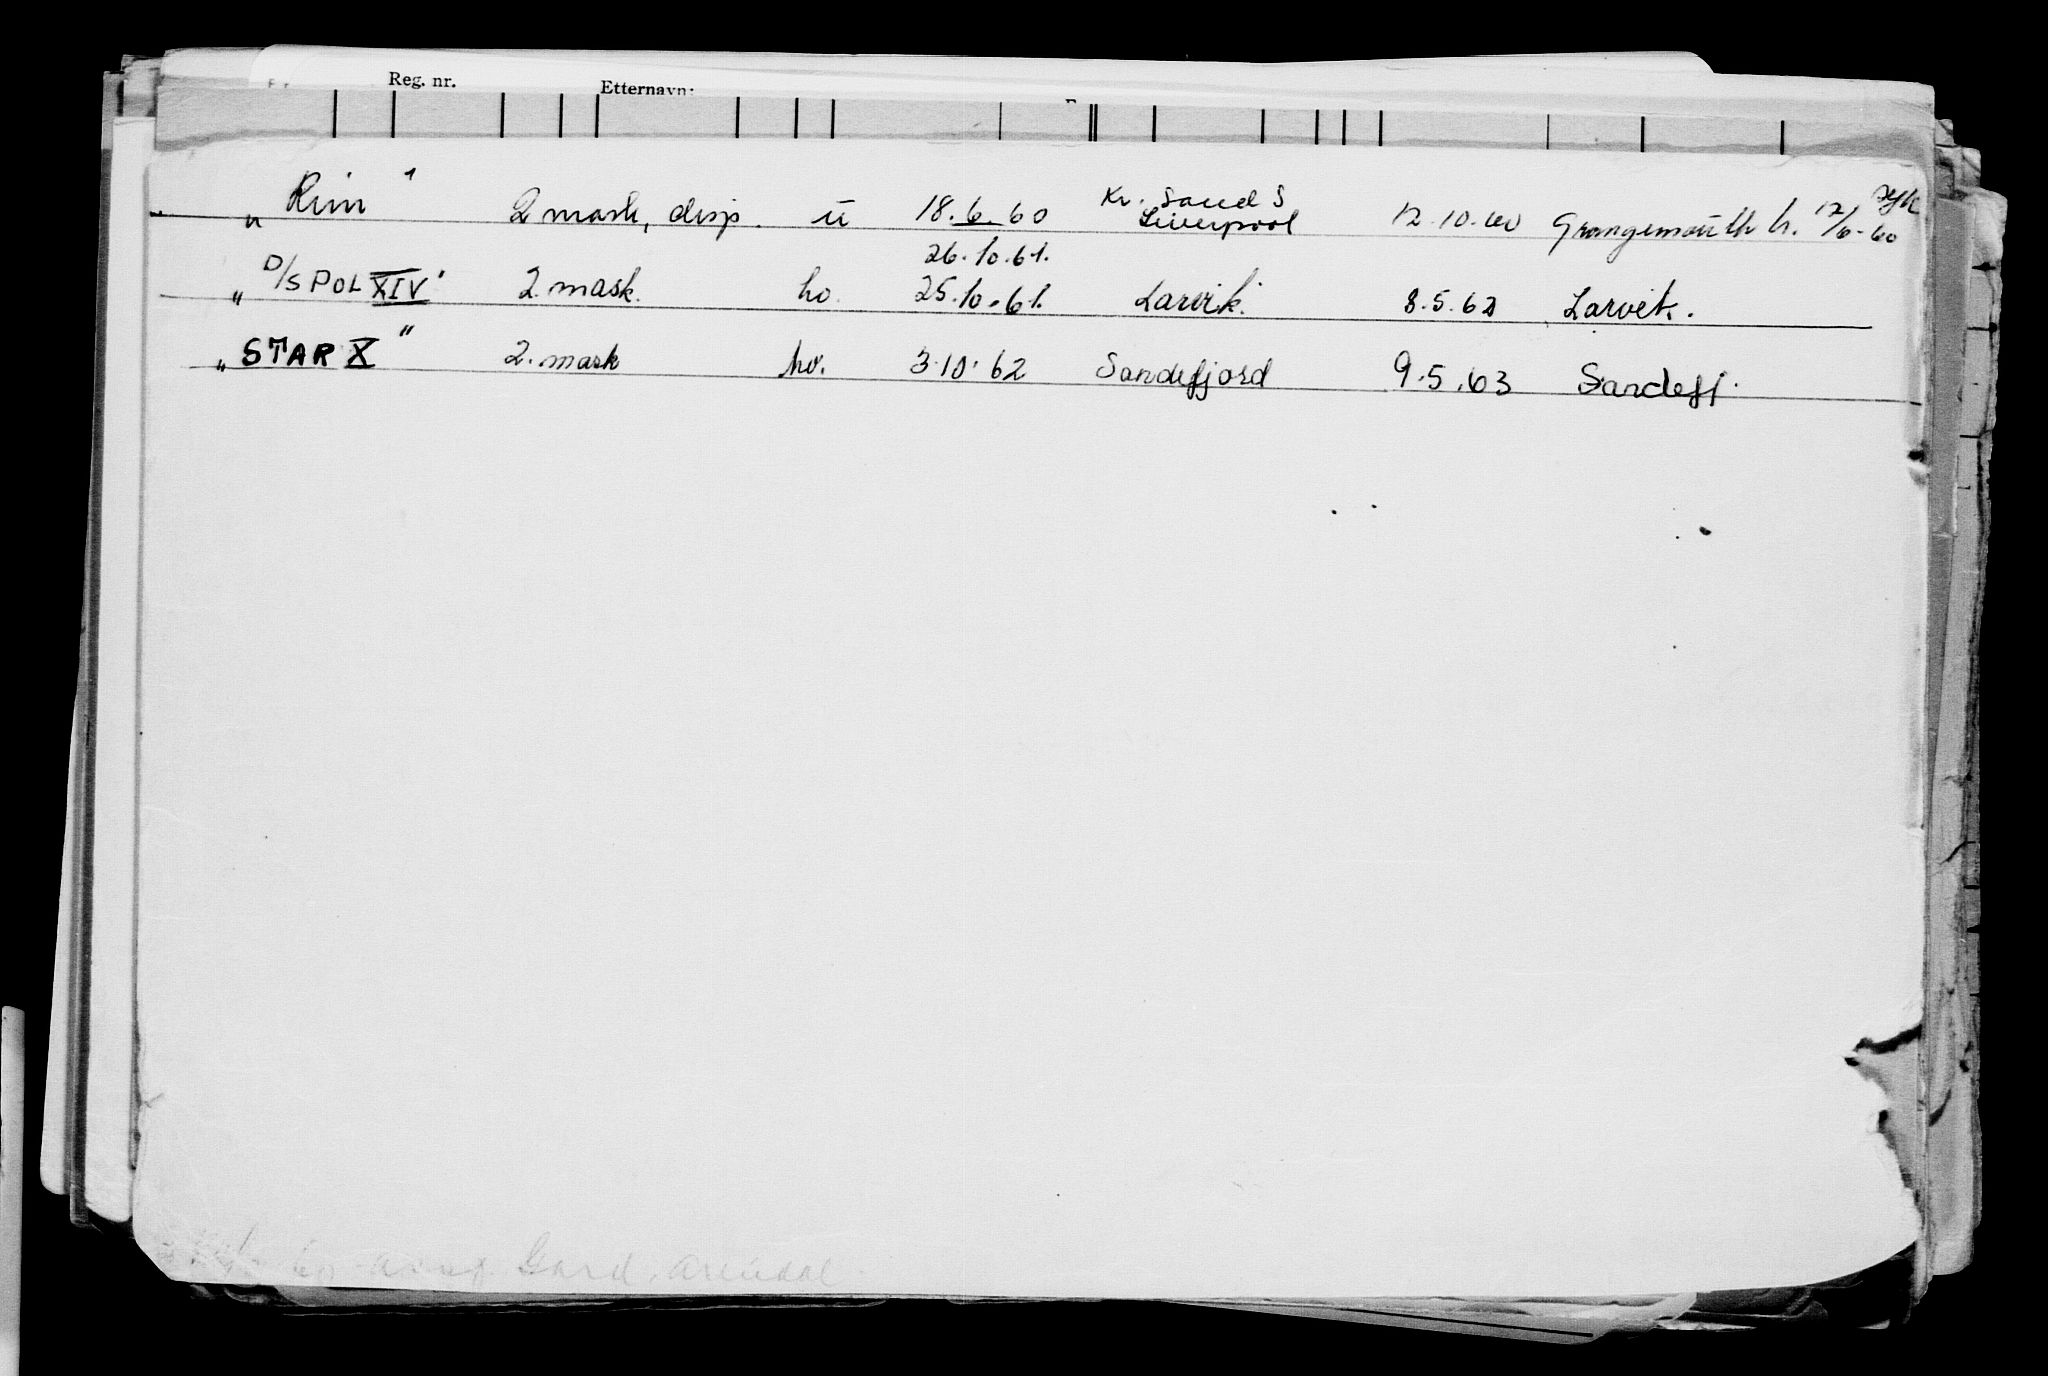 Reg. nr. Etternavn:
"Rim" 2 mask, disp. u 18.6.60 Kr. Sand S Liverpool 12.10.60 Grangemouth h. 12/6-60 syk
26.10.61.
"D/S POL XIV" 2. mask. ho. 25.10.61. Larvik. 8.5.62 Larvik.
"STAR X" 2. mask ho. 3.10.62 Sandefjord 9.5.63 Sandefj.
Arendal.